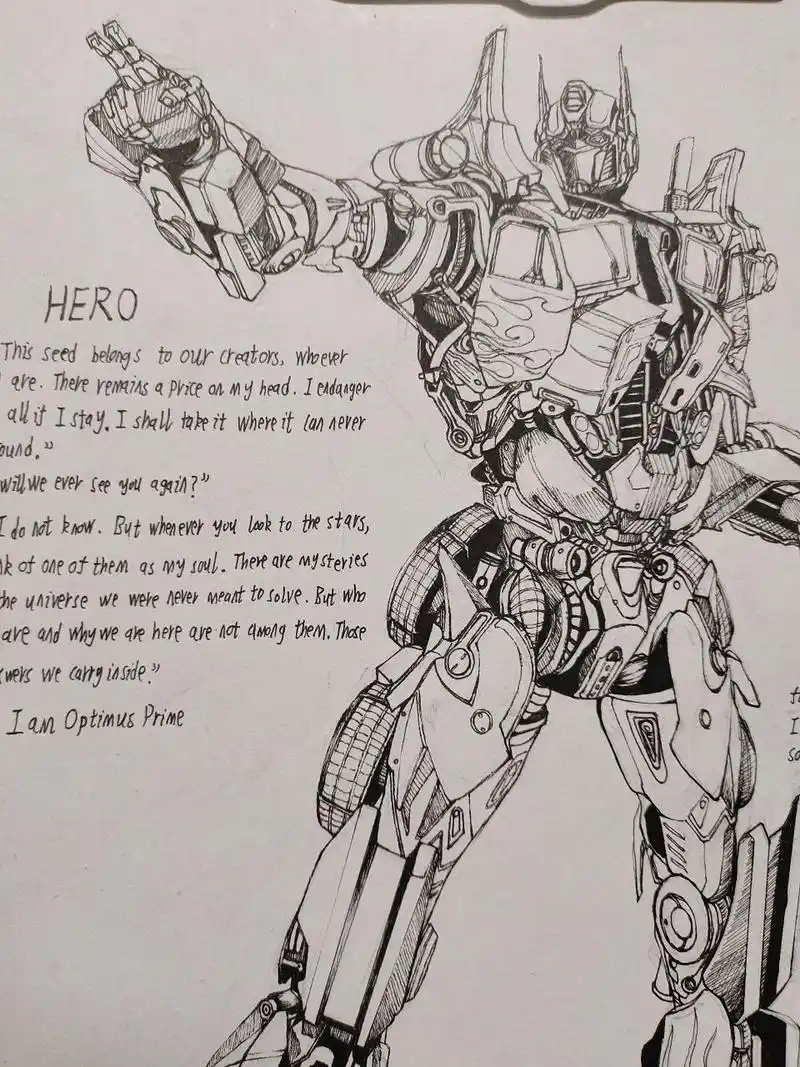 HERO
This seed belongs to our creators, whoever
are. There remains a price on my head. I endanger
all if I stay. I shall take it where it can never
ound."
will we ever see you again?"
I do not know. But whenever you look to the stars,
nk of one of them as my soul. There are mysteries
the universe we were never meant to solve. But who
are and why we are here are not among them. Those
swers we carry inside."
I am Optimus Prime
I
so